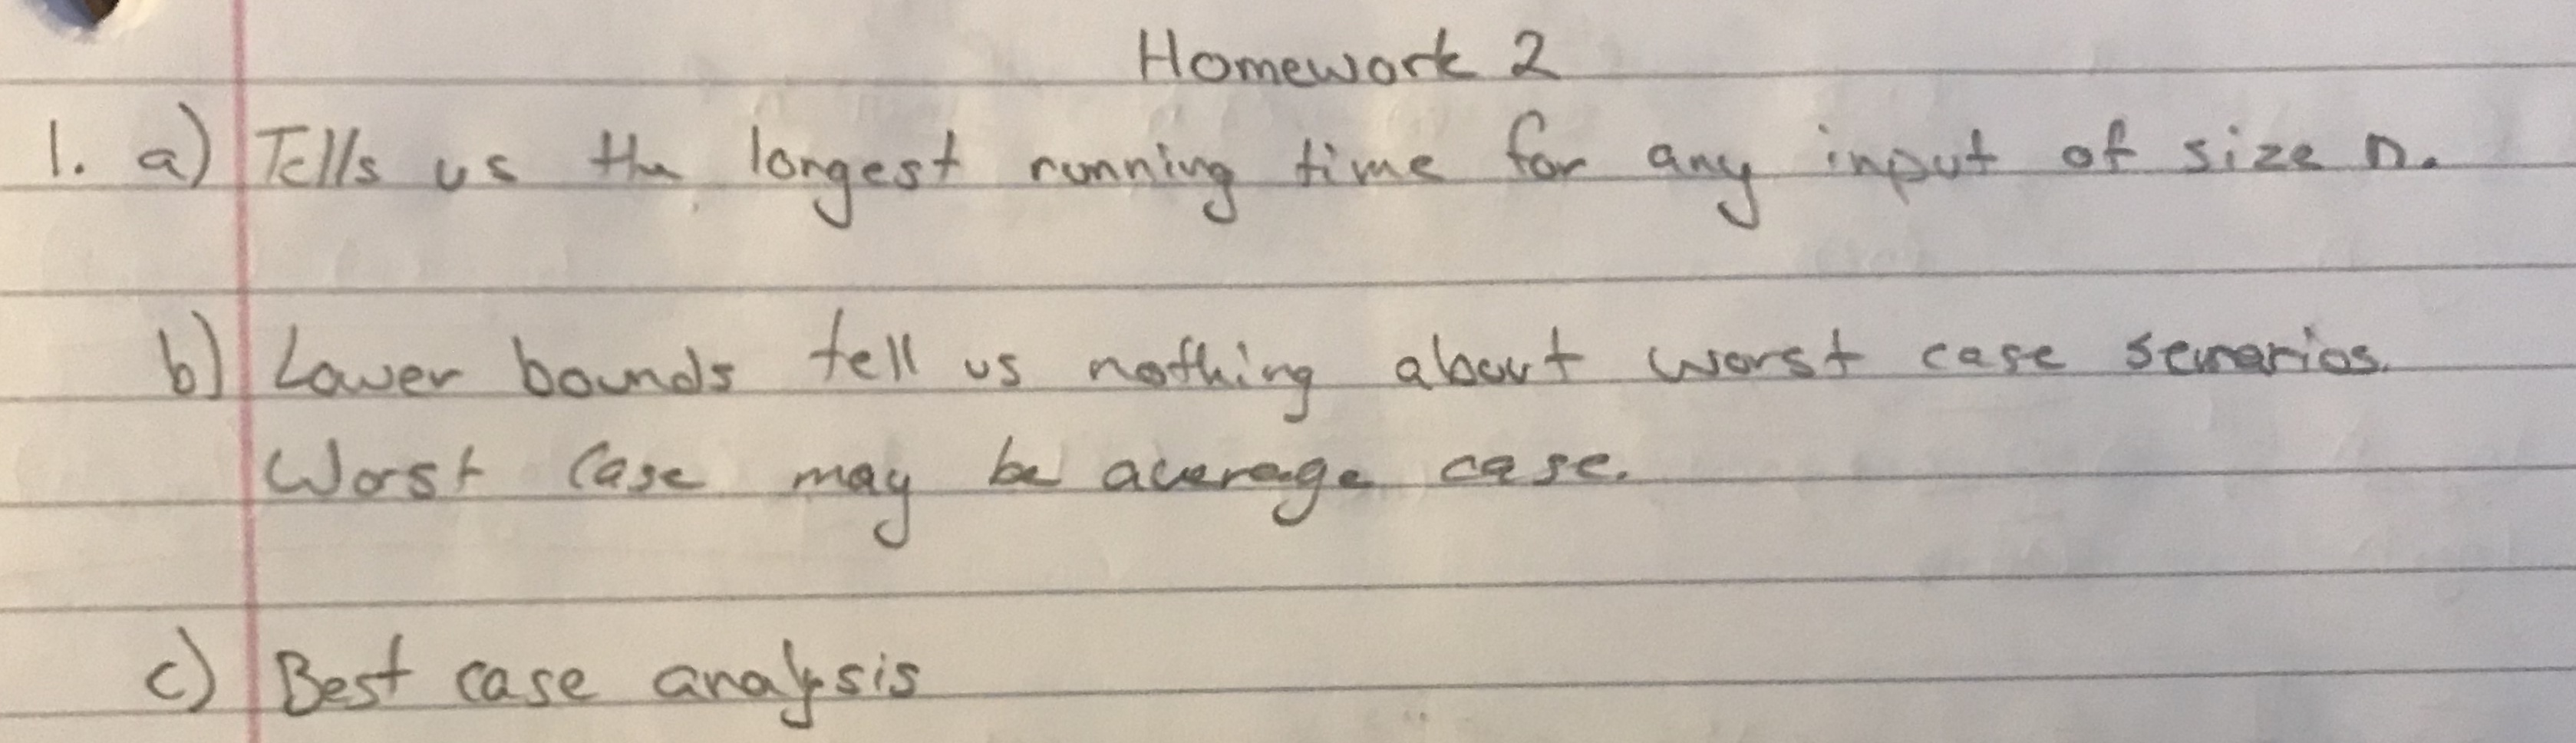 Homework 2
1. a) Tells us the longest running time for any input of size n.
b) Lower bounds tell us nothing about worst case senarios.
Worst Case may be average case.
c) Best case analysis